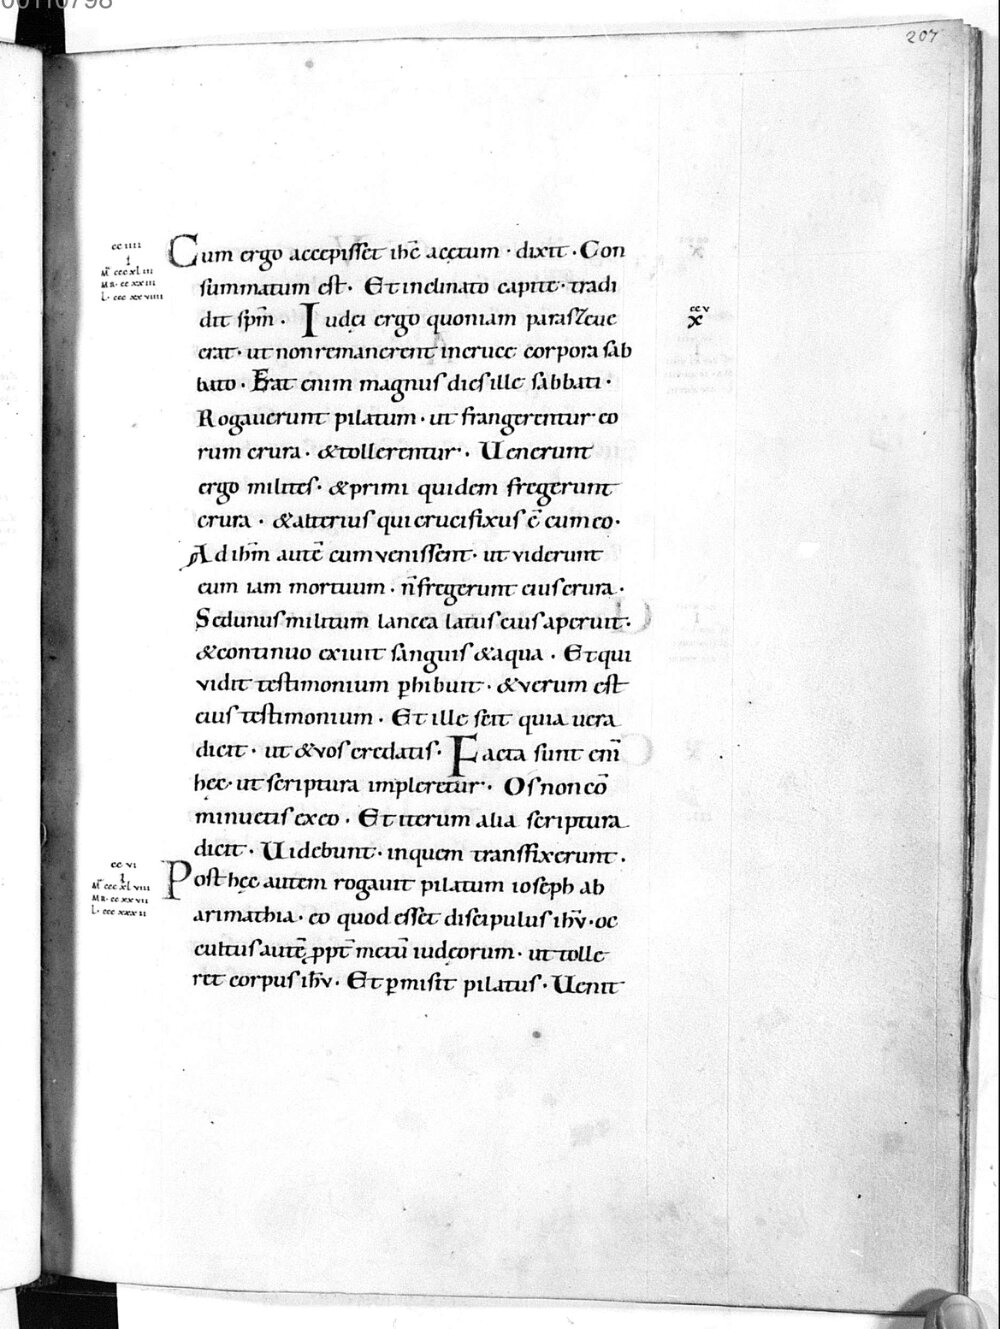 00110798
207
cc iiii
i
M̅ ccc xl iii
MR· cc xx iii
L· ccc xx viiii
Cum ergo accepisset ihc̅ acętum · dixit · Con
summatum est · Et inclinato capite · tradi
dit sp̅m · Iudei ergo quoniam parasceue
erat · ut non remanerent in cruce corpora sab
bato · Erat enim magnus dies ille sabbati ·
ccv
x
Rogauerunt pilatum · ut frangerentur eo
rum crura · & tollerentur · Uenerunt
ergo milites · & primi quidem fregerunt
crura · & alterius qui crucifixus ē cum eo ·
Ad ihm̅ autē cum venissent · ut viderunt
eum iam mortuum · n̅ fregerunt eius crura ·
Sed unus militum lancea latus eius aperuit ·
& continuo exiuit sanguis & aqua · Et qui
vidit testimonium phibuit · & verum est
eius testimonium · Et ille scit quia uera
dicit · ut & vos credatis · Facta sunt eni̅
hęc · ut scriptura impleretur · Os non co̅
minuetis ex eo · Et iterum alia scriptura
dicit · Uidebunt · in quem transfixerunt ·
cc vi
i
M̅ ccc xl viii
MR· cc xx vii
L· ccc xxx ii
Post hęc autem rogauit pilatum ioseph ab
arimathia · eo quod esset discipulus ihv̅ · oc
cultus autē ppt̅ metu̅ iudęorum · ut tolle
ret corpus ihv̅ · Et pmisit pilatus · Uenit